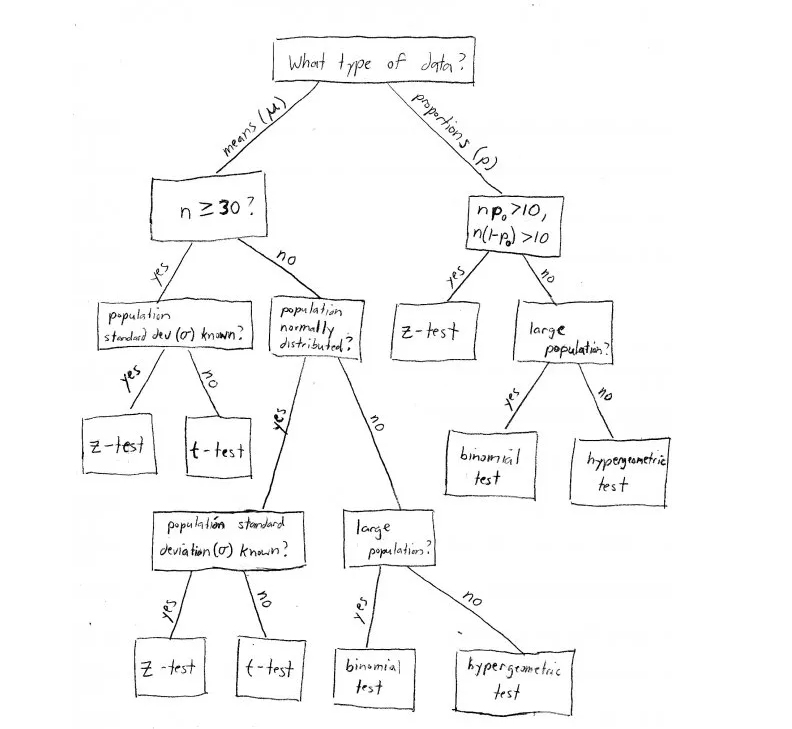 What type of data?
means (μ)
proportions (p)
n ≥ 30?
n p₀ >10,
n(1-p₀) >10
yes
no
yes
no
population
standard dev (σ) known?
population
normally
distributed?
z-test
large
population?
yes
no
yes
no
yes
no
z-test
t-test
binomial
test
hypergeometric
test
population standard
deviation (σ) known?
large
population?
yes
no
yes
no
z-test
t-test
binomial
test
hypergeometric
test